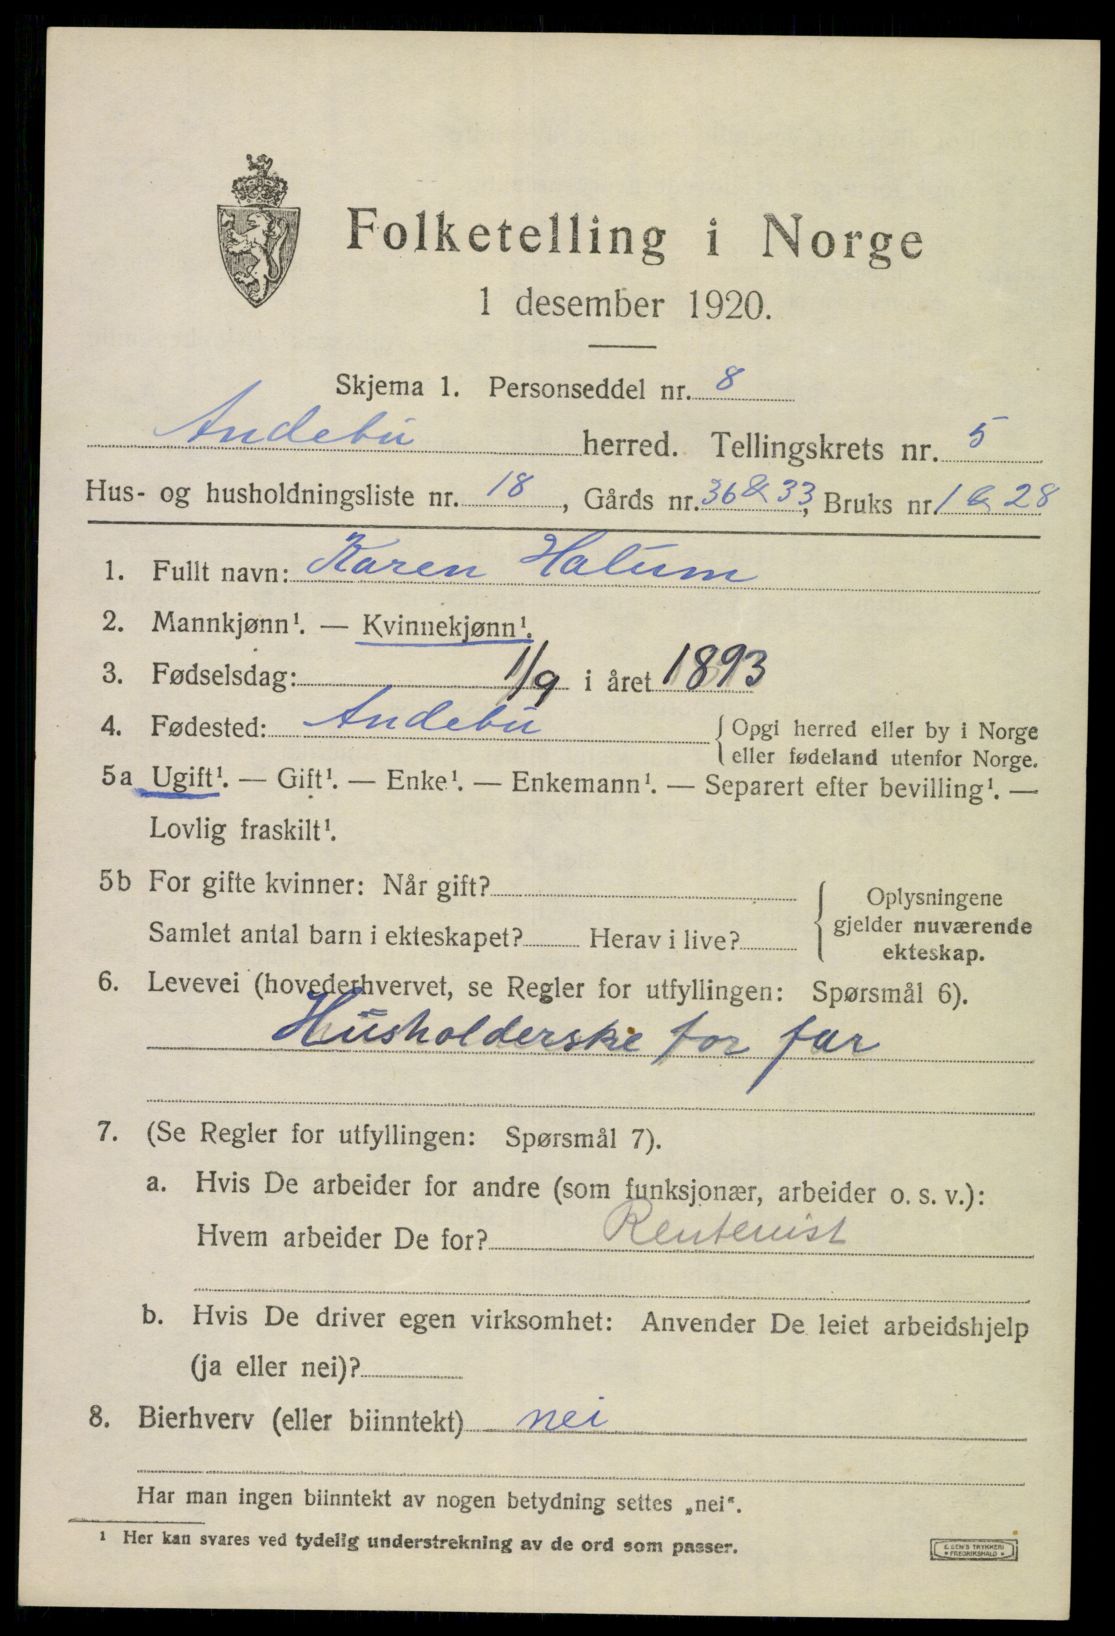 Folketelling i Norge
1 desember 1920.
Skjema 1. Personseddel nr. 8
Andebu herred. Tellingskrets nr. 5
Hus- og husholdningsliste nr. 18, Gårds nr. 36 & 33, Bruks nr. 1 & 28
1. Fullt navn: Karen Hatum
2. Mannkjønn¹. — Kvinnekjønn¹.
3. Fødselsdag: 1/9 i året 1893
4. Fødested: Andebu { Opgi herred eller by i Norge
eller fødeland utenfor Norge.
5a Ugift¹. — Gift¹. — Enke¹. — Enkemann¹. — Separert efter bevilling¹. —
Lovlig fraskilt¹.
5b For gifte kvinner: Når gift?
Samlet antal barn i ekteskapet? Herav i live?
{ Oplysningene
gjelder nuværende
ekteskap.
6. Levevei (hovederhvervet, se Regler for utfyllingen: Spørsmål 6).
Husholderske for far
7. (Se Regler for utfyllingen: Spørsmål 7).
a. Hvis De arbeider for andre (som funksjonær, arbeider o. s. v.):
Hvem arbeider De for? Rentenist
b. Hvis De driver egen virksomhet: Anvender De leiet arbeidshjelp
(ja eller nei)?
8. Bierhverv (eller biinntekt) nei
Har man ingen biinntekt av nogen betydning settes „nei“.
¹ Her kan svares ved tydelig understrekning av de ord som passer.
E. SEM'S TRYKKERI
FREDRIKSHALD